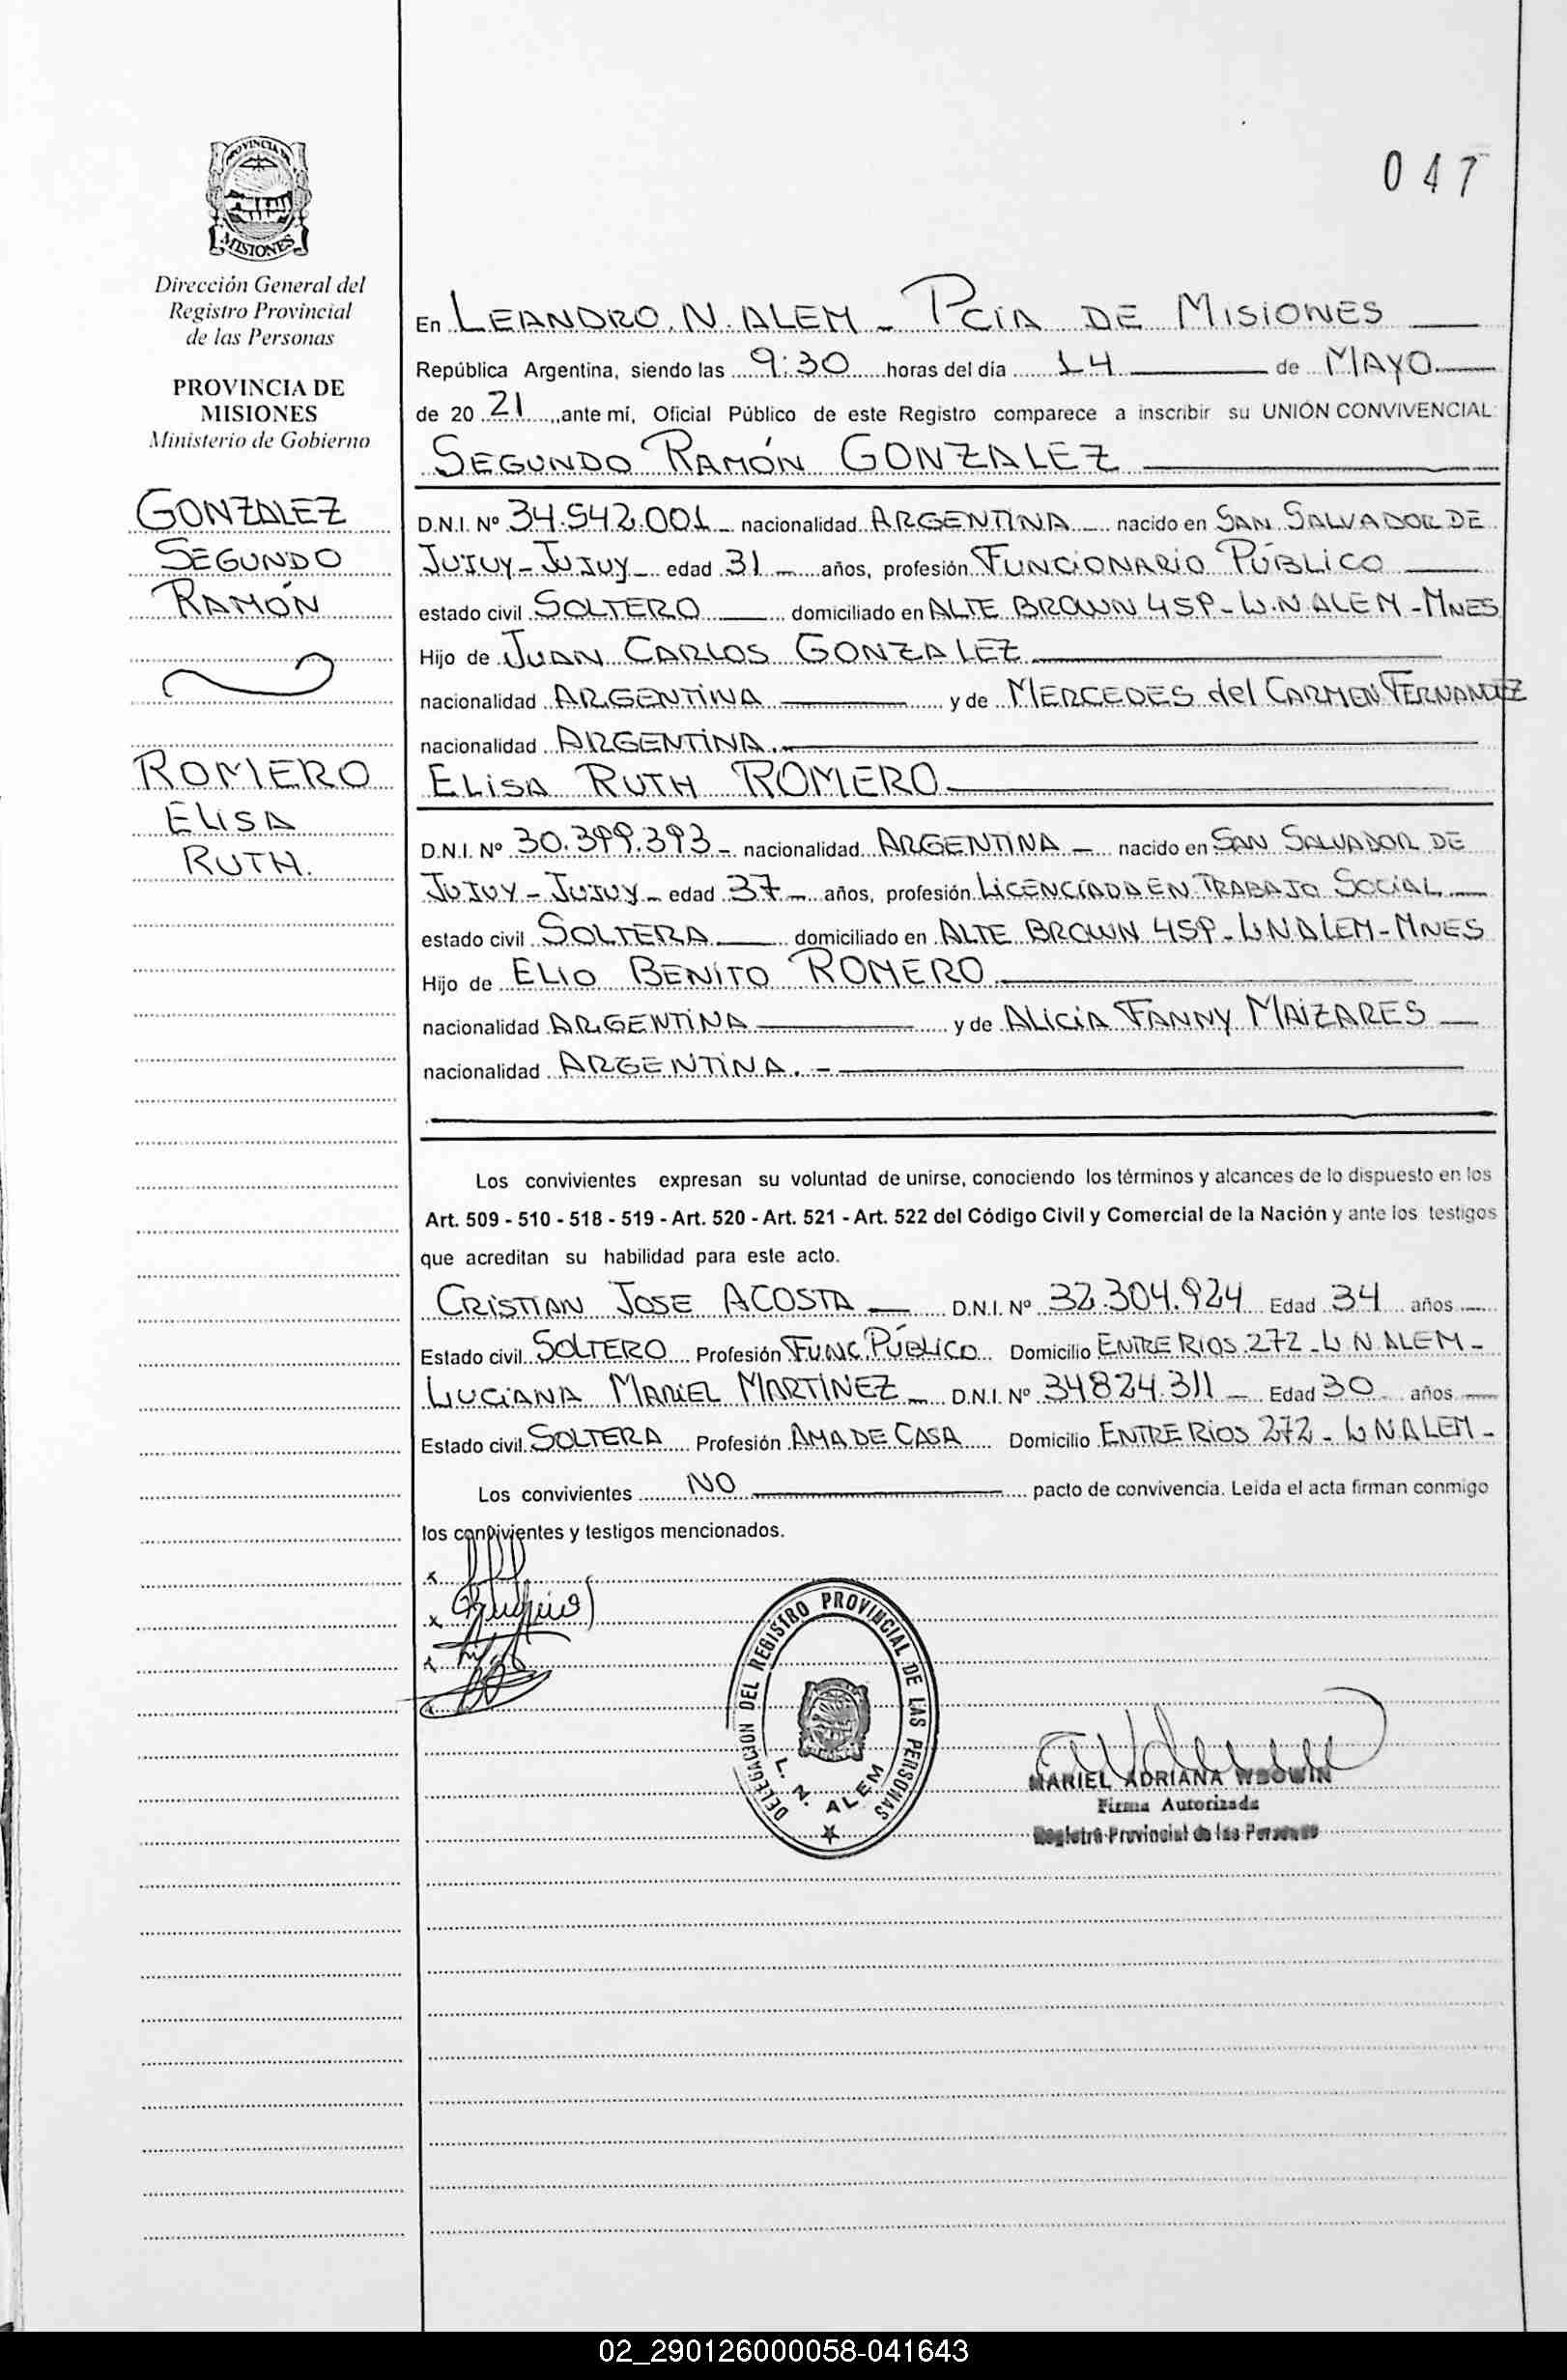 PROVINCIA DE
MISIONES
Dirección General del
Registro Provincial
de las Personas
PROVINCIA DE
MISIONES
Ministerio de Gobierno
GONZALEZ
SEGUNDO
RAMÓN
ROMERO
ELISA
RUTH.
047
En LEANDRO N. ALEM - PCIA DE MISIONES
República Argentina, siendo las 9:30 horas del día 14 de MAYO
de 20 21, ante mí, Oficial Público de este Registro comparece a inscribir su UNIÓN CONVIVENCIAL:
SEGUNDO RAMÓN GONZALEZ
D.N.I. Nº 34.542.001 - nacionalidad ARGENTINA - nacido en SAN SALVADOR DE
JUJUY - JUJUY - edad 31 - años, profesión FUNCIONARIO PÚBLICO
estado civil SOLTERO domiciliado en ALTE BROWN 459 - L.N. ALEM - MNES
Hijo de JUAN CARLOS GONZALEZ
nacionalidad ARGENTINA y de MERCEDES del CARMEN FERNANDEZ
nacionalidad ARGENTINA.
ELISA RUTH ROMERO
D.N.I. Nº 30.399.393 - nacionalidad ARGENTINA - nacido en SAN SALVADOR DE
JUJUY - JUJUY - edad 37 - años, profesión LICENCIADA EN TRABAJO SOCIAL
estado civil SOLTERA domiciliado en ALTE BROWN 459 - L N ALEM - MNES
Hijo de ELIO BENITO ROMERO
nacionalidad ARGENTINA y de ALICIA FANNY MAIZARES
nacionalidad ARGENTINA. -
Los convivientes expresan su voluntad de unirse, conociendo los términos y alcances de lo dispuesto en los
Art. 509 - 510 - 518 - 519 - Art. 520 - Art. 521 - Art. 522 del Código Civil y Comercial de la Nación y ante los testigos
que acreditan su habilidad para este acto.
CRISTIAN JOSE ACOSTA D.N.I. Nº 32.304.924 Edad 34 años
Estado civil SOLTERO Profesión FUNC. PÚBLICO Domicilio ENTRE RIOS 272 - L N ALEM -
LUCIANA MARIEL MARTÍNEZ - D.N.I. Nº 34824.311 - Edad 30 años
Estado civil SOLTERA Profesión AMA DE CASA Domicilio ENTRE RIOS 272 - L N ALEM -
Los convivientes NO pacto de convivencia. Leída el acta firman conmigo
los convivientes y testigos mencionados.
DELEGACION DEL REGISTRO PROVINCIAL DE LAS PERSONAS
L. N. ALEM
MARIEL ADRIANA WDOWIN
Firma Autorizada
Registro Provincial de las Personas
02_290126000058-041643